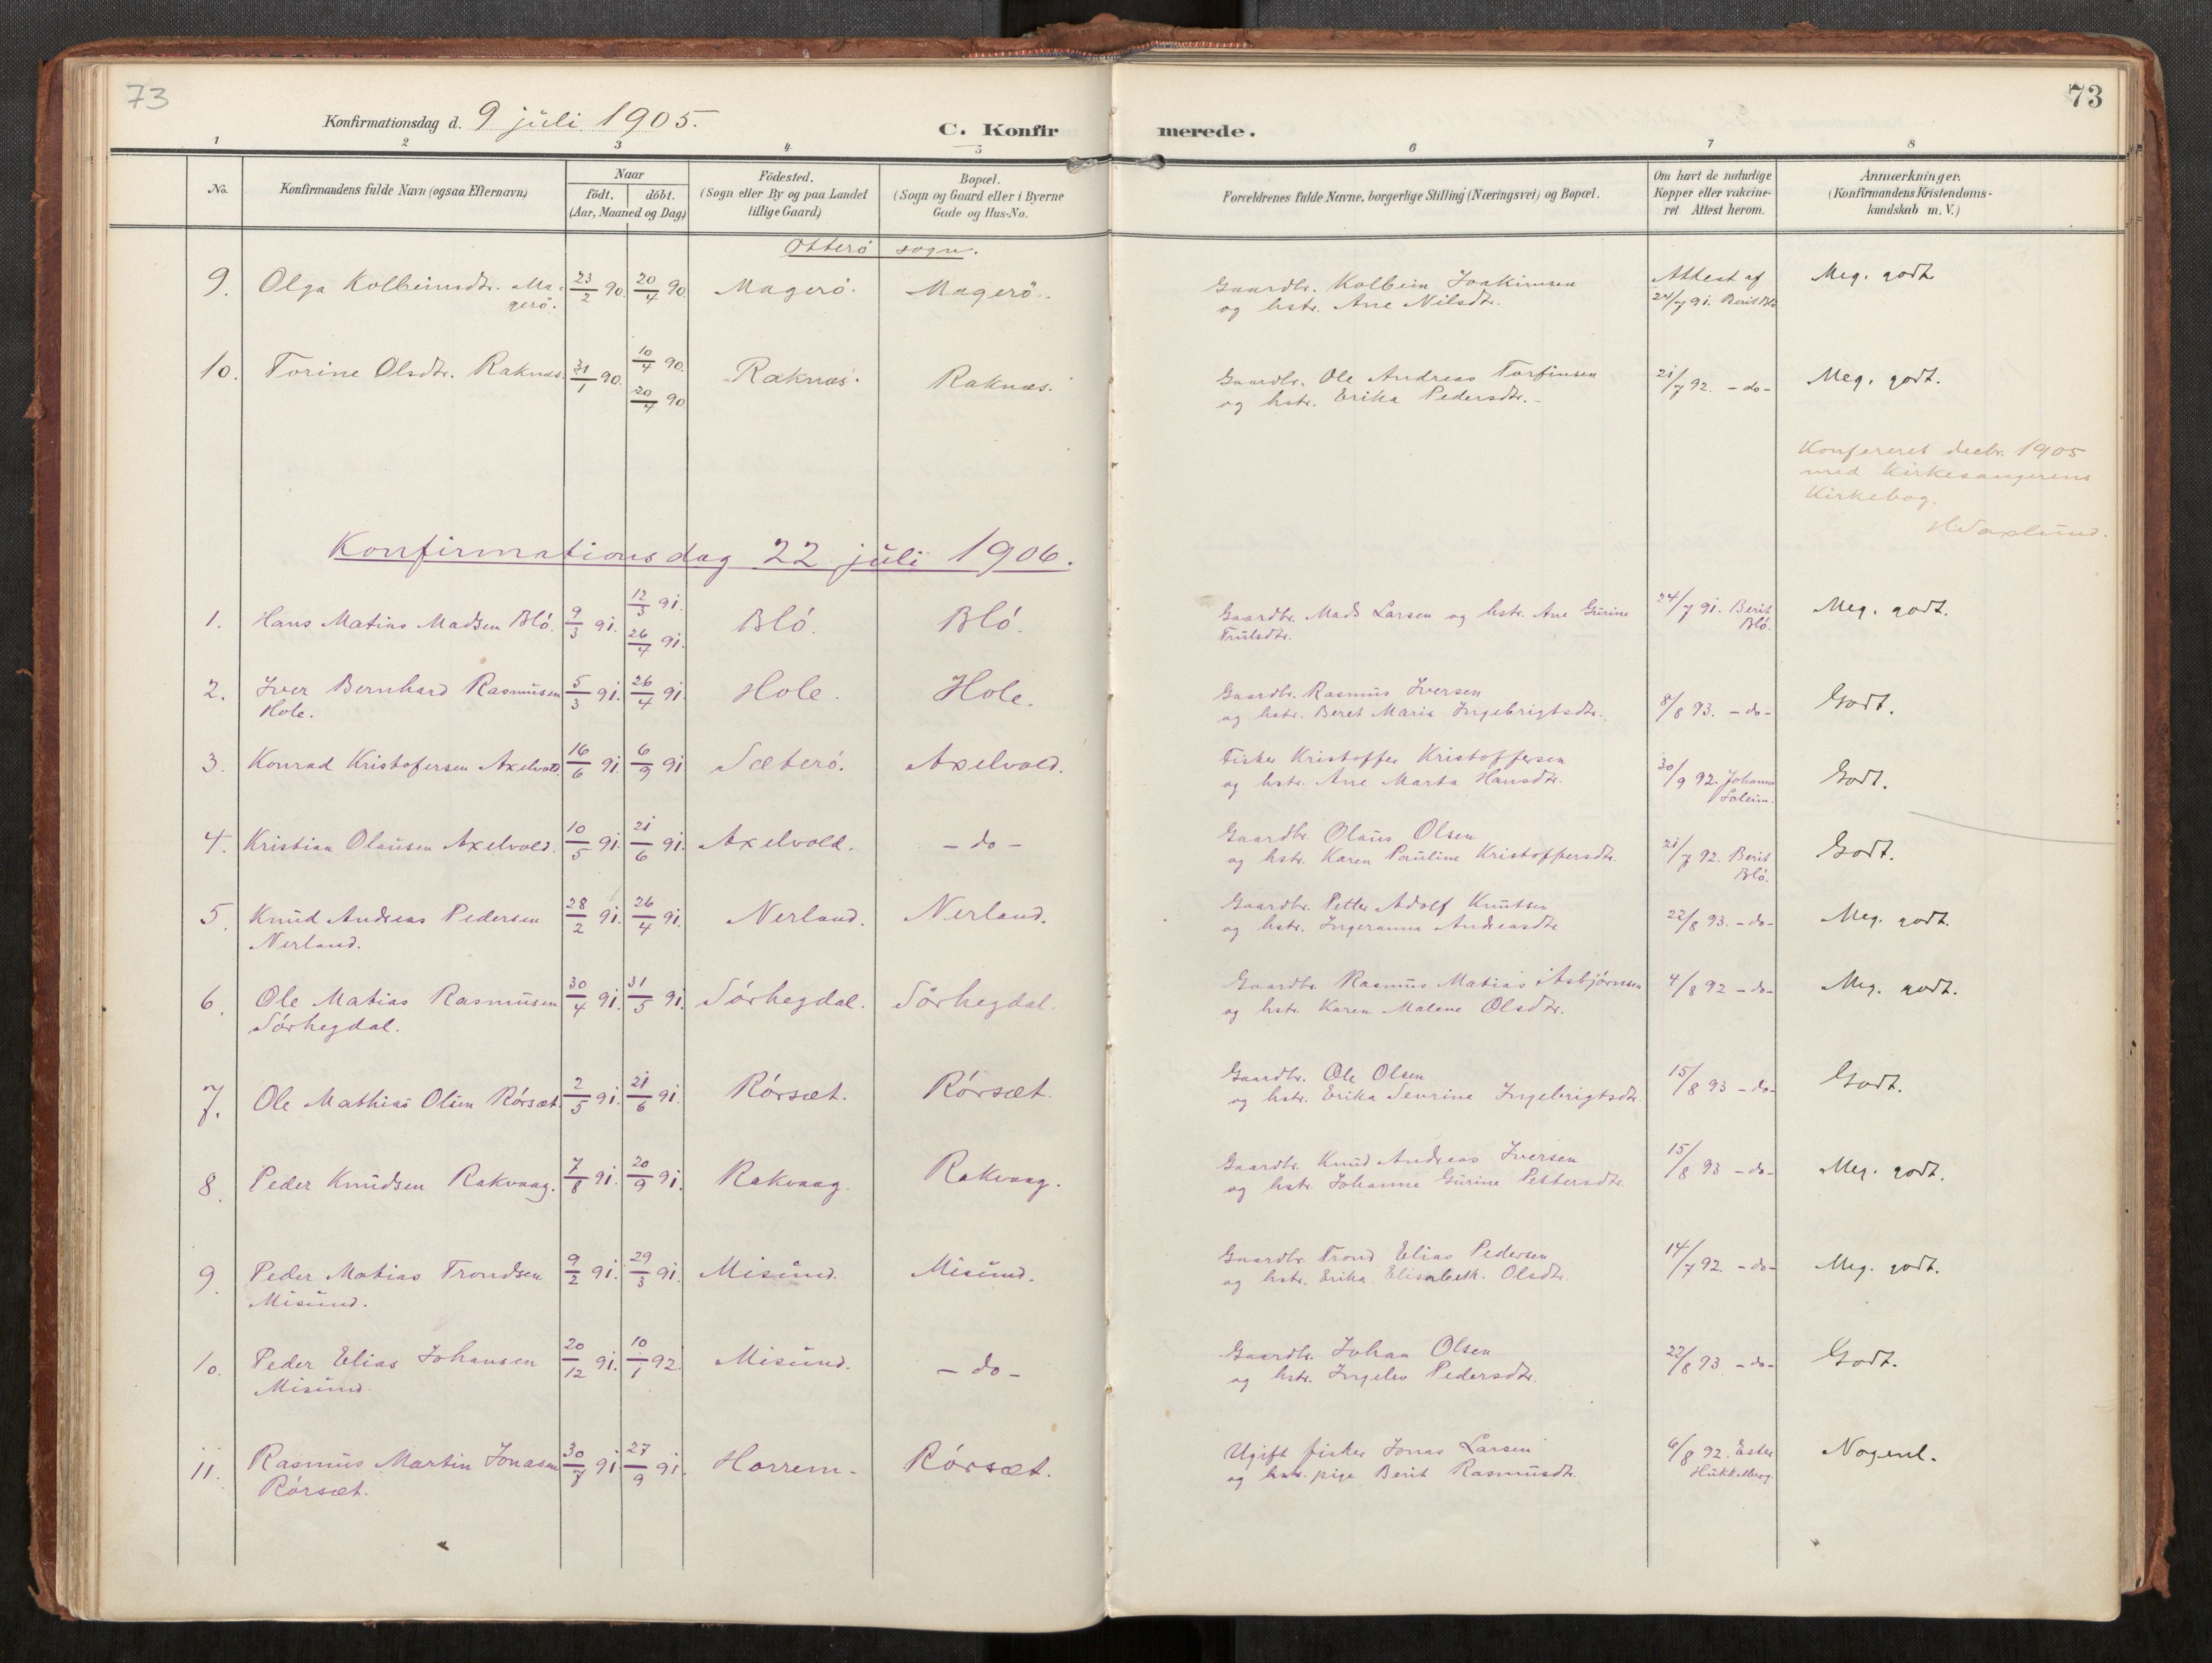 73
73
Konfirmationsdag d. 9 juli 1905.
C. Konfir merede.
1 2 3 4 5 6 7 8
No. Konfirmandens fulde Navn (ogsaa Efternavn) Naar födt. döbt. (Aar, Maaned og Dag) Födested. (Sogn eller By og paa Landet tillige Gaard) Bopæl. (Sogn og Gaard eller i Byerne Gade og Hus-No. Forældrenes fulde Navne, borgerlige Stilling (Næringsvei) og Bopæl. Om havt de naturlige Kopper eller vakcineret Attest herom. Anmærkninger. (Konfirmandens Kristendomskundskab m. V.)
Otterö sogn.
9. Olga Kolbeinsdtr. Magerö. 23/2 90. 20/4 90. Magerö. Magerö. Gaardbr. Kolbein Joakimsen Attest af Meg. godt
og hstr. Ane Nilsdtr. 24/7 91. Berit Blö
10. Torine Olsdtr. Raknæs. 31/1 90. 10/4 90. Raknæs. Raknæs. Gaardbr. Ole Andreas Torfinsen 21/7 92. -do- Meg. godt.
20/4 90 og hstr. Erika Pedersdtr.-
Konfereret decbr. 1905
med Kirkesangerens
Kirkebog.
Konfirmationsdag 22 juli 1906.
1. Hans Matias Madsen Bló. 9/3 91. 12/3 91. Bló. Bló. Gaardbr. Mads Larsen og hstr. Ane Gurine 24/7 91. Berit Bló. Meg. godt.
26/4 91. Trulsdtr.
2. Iver Bernhard Rasmusen 5/3 91. 26/4 91. Hole. Hole. Gaardbr. Rasmus Iversen 8/8 93. -do- Godt.
Hole. og hstr. Beret Maria Ingebrigtsdtr.
3. Konrad Kristofersen Axelvold. 16/6 91. 6/9 91 Sæteró. Axelvold. Fisker Kristoffer Kristoffersen 30/9 92. Johanna Soleim. Godt.
og hstr. Ane Marta Hansdtr.
4. Kristian Olausen Axelvold. 10/5 91. 21/6 91. Axelvold. - do - Gaardbr. Olaus Olsen 21/7 92. Berit Bló. Godt.
og hstr. Karen Pauline Kristoffersdtr.
5. Knud Andreas Pedersen 28/2 91. 26/4 91. Nerland. Nerland. Gaardbr. Petter Adolf Knutsen 22/8 93. -do- Meg. godt.
Nerland. og hstr. Ingeranna Andreasdtr
6. Ole Matias Rasmusen 30/4 91. 31/5 91. Sórhegdal. Sórhegdal. Gaardbr. Rasmus Matias Asbjórnsen 4/8 92 -do- Meg. godt.
Sórhegdal. og hstr. Karen Malene Olsdtr.
7. Ole Mathias Olsen Rórsæt. 2/5 91. 21/6 91. Rórsæt. Rórsæt. Gaardbr. Ole Olsen 15/8 93 -do- Godt.
og hstr. Erika Sevrine Ingebrigtsdtr.
8. Peder Knudsen Rakvaag. 7/8 91. 20/9 91. Rakvaag. Rakvaag. Gaardbr. Knud Andreas Iversen 15/8 93 -do- Meg. godt.
og hstr. Johanne Gurine Pettersdtr.
9. Peder Matias Trondsen 9/2 91. 29/3 91. Misund. Misund. Gaardbr. Trond Elias Pedersen 14/7 92. -do- Meg. godt.
Misund. og hstr. Erika Elisabeth. Olsdtr.
10. Peder Elias Johansen 20/12 91. 10/1 92. Misund. - do - Gaardbr. Johan Olsen 22/8 93. -do- Godt.
Misund. og hstr. Ingelev Pedersdtr.
11. Rasmus Martin Jonasen 30/7 91 27/9 91. Horrem. Rórsæt. Ugift fisker Jonas Larsen 6/8 92. Ester Hukkelberg. Nogenl.
Rórsæt. og pige Berit Rasmusdtr.